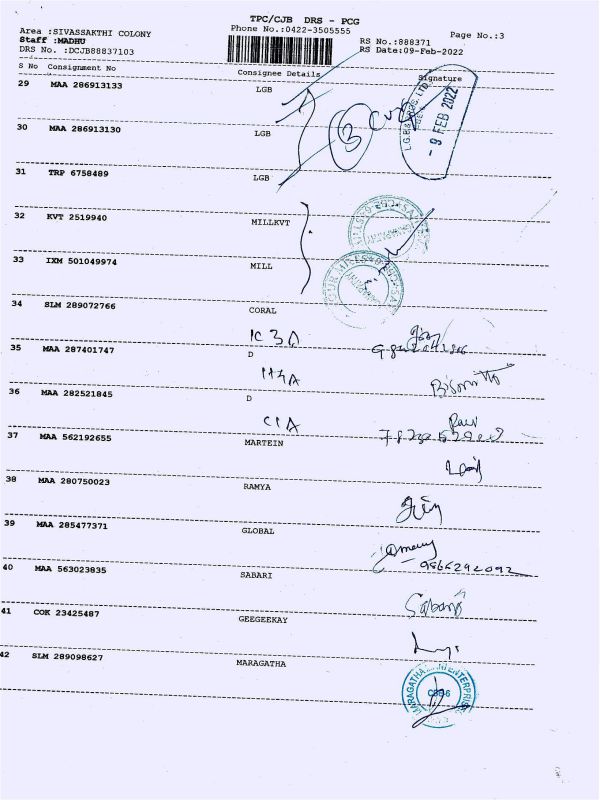 TPC/CJB DRS - PCG
Area :SIVASSAKTHI COLONY Phone No.:0422-3505555 Page No.:3
Staff :MADHU RS No.:888371
DRS No. :DCJB88837103 RS Date:09-Feb-2022
S No Consignment No Consignee Details Signature
29 MAA 286913133 LGB
3
- 9 FEB 2022
30 MAA 286913130 LGB
31 TRP 6758489 LGB
32 KVT 2519940 MILLKVT
33 IXM 501049974 MILL
34 SLM 289072766 CORAL
IC 3A
35 MAA 287401747 D
H3A
36 MAA 282521845 D
C1A
37 MAA 562192655 MARTEIN
38 MAA 280750023 RAMYA
39 MAA 285477371 GLOBAL
9866292092
40 MAA 563023835 SABARI
Sabari
41 COK 23425487 GEEGEEKAY
42 SLM 289098627 MARAGATHA